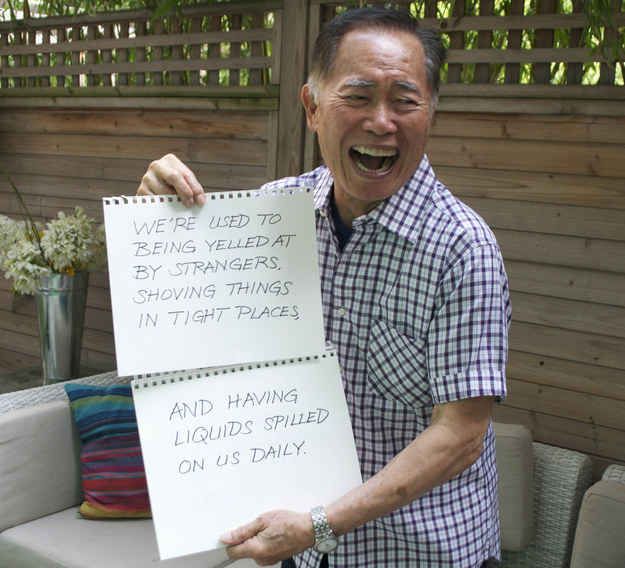 WE'RE USED TO
BEING YELLED AT
BY STRANGERS,
SHOVING THINGS
IN TIGHT PLACES,
AND HAVING
LIQUIDS SPILLED
ON US DAILY.